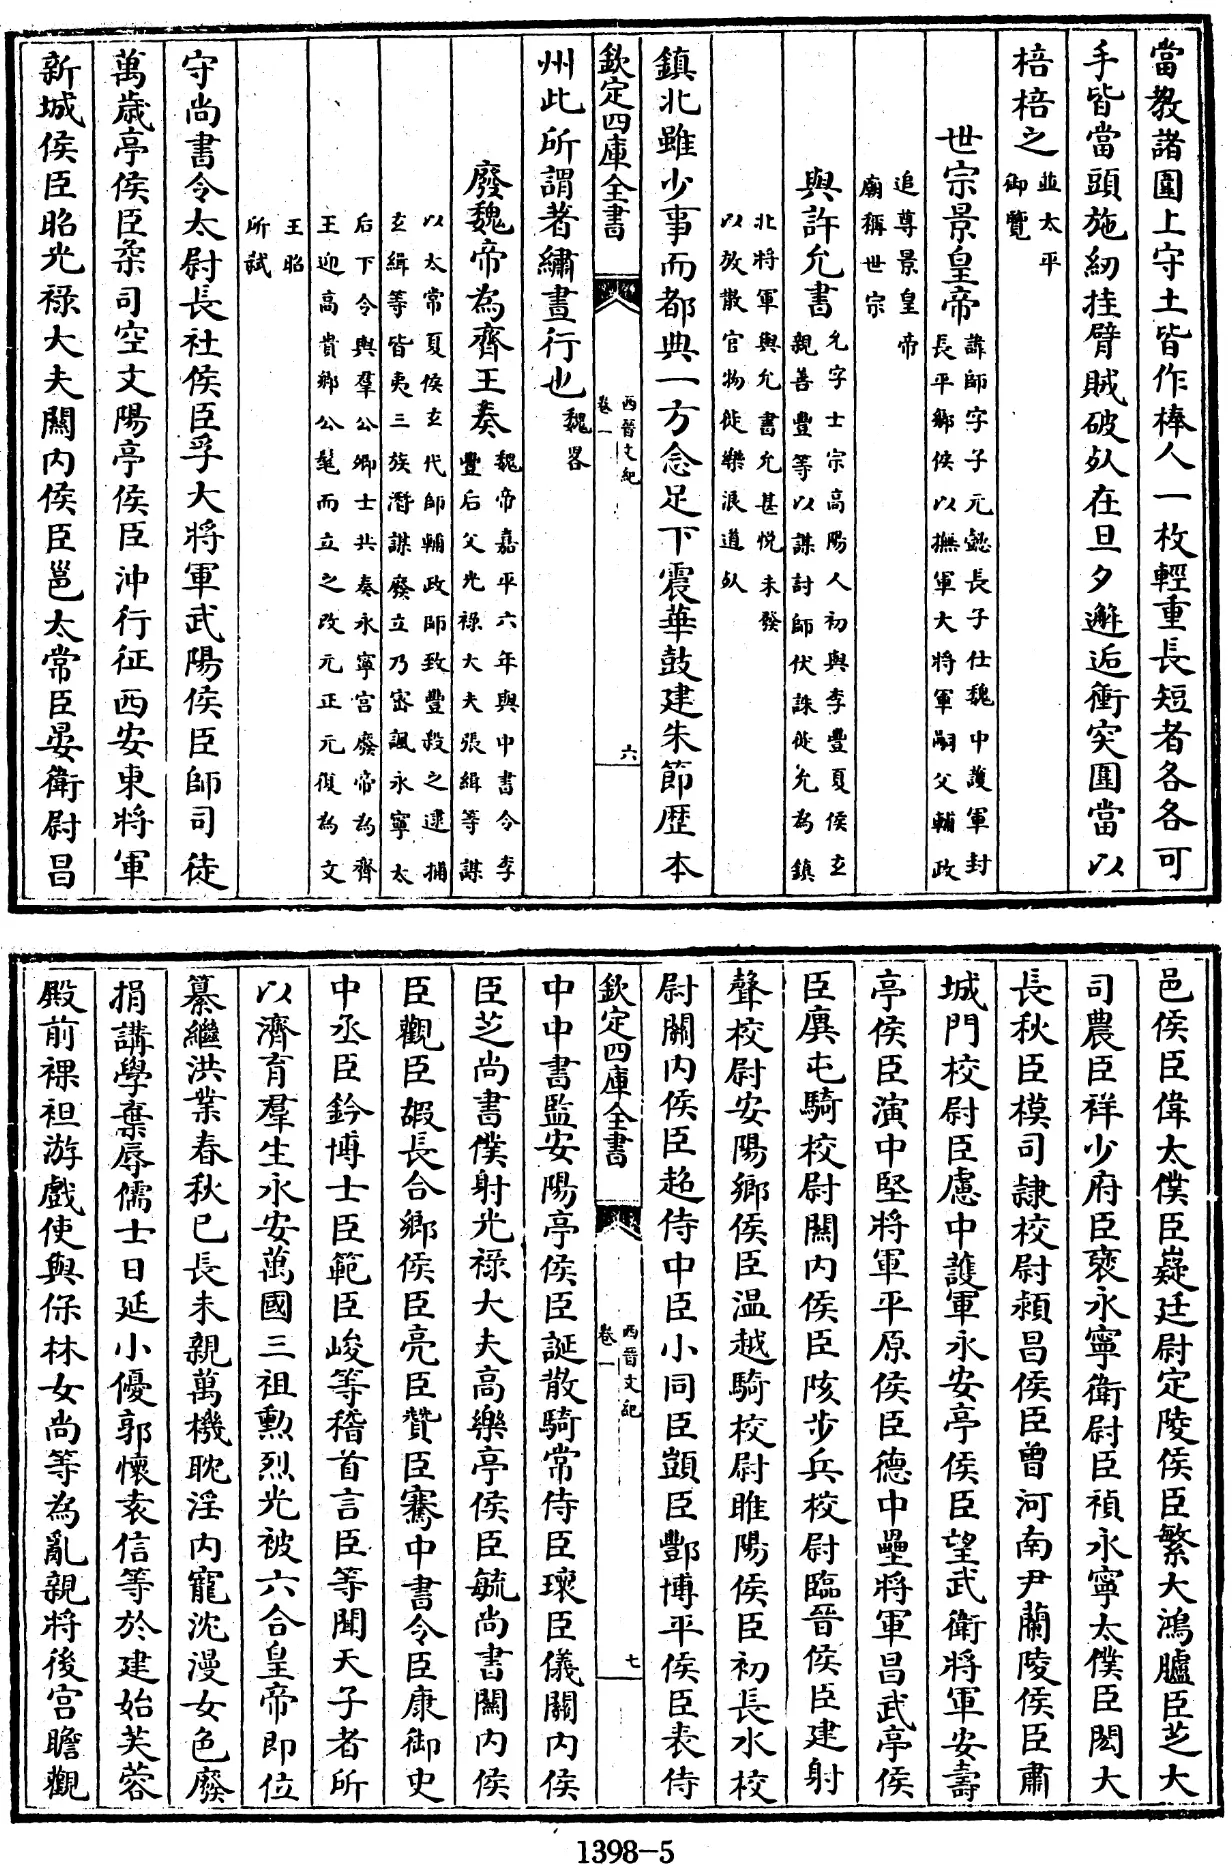 當教諸圍上守士皆作棒人一枚輕重長短者各各可
手皆當頭施紉挂臂賊破敗在旦夕邂逅衝突圍當以
棓棓之並太平
御覽
世宗景皇帝諱師字子元懿長子仕魏中護軍封
長平鄉侯以撫軍大將軍嗣父輔政
追尊景皇帝
廟稱世宗
與許允書允字士宗高陽人初與李豐夏侯玄
親善豐等以謀討師伏誅徙允為鎮
北將軍與允書允甚悅未發
以放散官物徙樂浪道死
鎮北雖少事而都典一方念足下震華鼓建朱節歴本
欽定四庫全書
西晉文紀
卷一
六
州此所謂著繡晝行也魏畧
廢魏帝為齊王奏魏帝嘉平六年與中書令李
豐后父光祿大夫張緝等謀
以太常夏侯玄代師輔政師致豐殺之逮捕
玄緝等皆夷三族潛謀廢立乃密諷永寧太
后下令與羣公卿士共奏永寧宮廢帝為齊
王迎高貴鄉公髦而立之改元正元復為文
王昭
所弒
守尚書令太尉長社侯臣孚大將軍武陽侯臣師司徒
萬歲亭侯臣柔司空文陽亭侯臣沖行征西安東將軍
新城侯臣昭光祿大夫關內侯臣邕太常臣晏衛尉昌
邑侯臣偉太僕臣嶷廷尉定陵侯臣繁大鴻臚臣芝大
司農臣祥少府臣褒永寧衛尉臣禎永寧太僕臣閎大
長秋臣模司隸校尉潁昌侯臣曾河南尹蘭陵侯臣肅
城門校尉臣慮中護軍永安亭侯臣望武衛將軍安壽
亭侯臣演中堅將軍平原侯臣德中壘將軍昌武亭侯
臣廙屯騎校尉關內侯臣陔步兵校尉臨晉侯臣建射
聲校尉安陽鄉侯臣温越騎校尉睢陽侯臣初長水校
尉關內侯臣超侍中臣小同臣顗臣酆博平侯臣表侍
欽定四庫全書
西晉文紀
卷一
七
中中書監安陽亭侯臣誕散騎常侍臣瓌臣儀關內侯
臣芝尚書僕射光祿大夫高樂亭侯臣毓尚書關內侯
臣觀臣嘏長合鄉侯臣亮臣贊臣騫中書令臣康御史
中丞臣鈐博士臣範臣峻等稽首言臣等聞天子者所
以濟育羣生永安萬國三祖勲烈光被六合皇帝即位
纂繼洪業春秋已長未親萬機耽淫內寵沈漫女色廢
捐講學棄辱儒士日延小優郭懷袁信等於建始芙蓉
殿前裸袒游戲使與保林女尚等為亂親將後宮瞻觀
1398-5